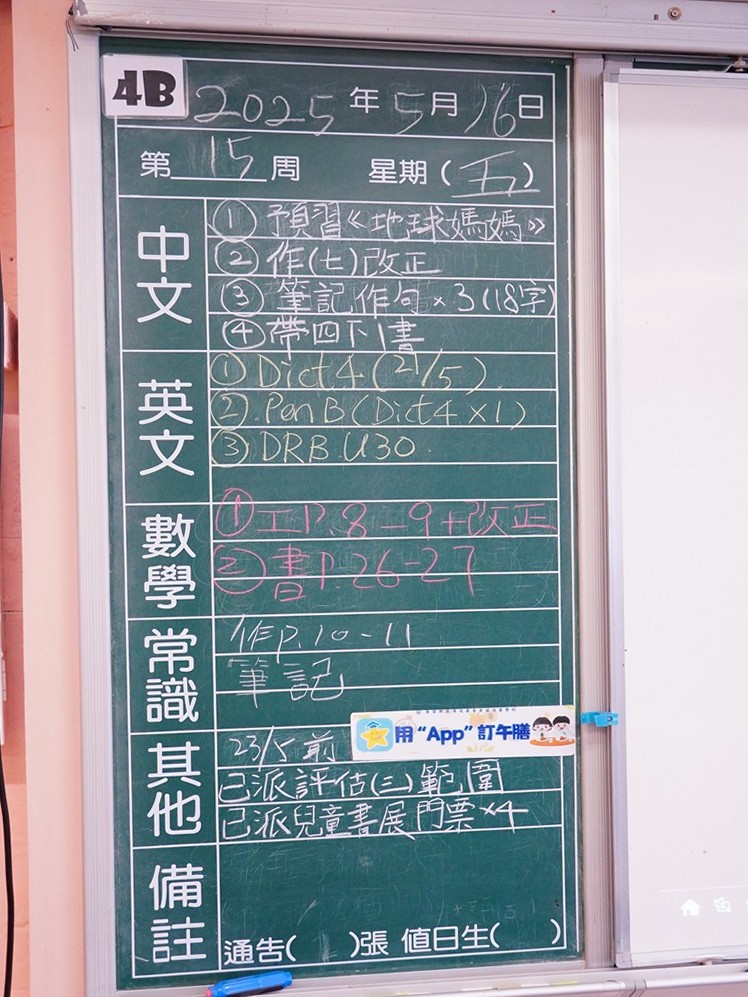 4B 2025年5月16日
第15周 星期(五)
中文
① 預習《地球媽媽》
② 作(七)改正
③ 筆記作句×3(18字)
④ 帶四下1書
英文
① Dict 4 (21/5)
② Pen B (Dict 4 ×1)
③ DRB U30
數學
① 工P.8-9+改正
② 書P.26-27
常識
作P.10-11
筆記
其他
23/5前
用“App”訂午膳
已派評估(三)範圍
已派兒童書展門票×4
備註
通告( )張 值日生( )